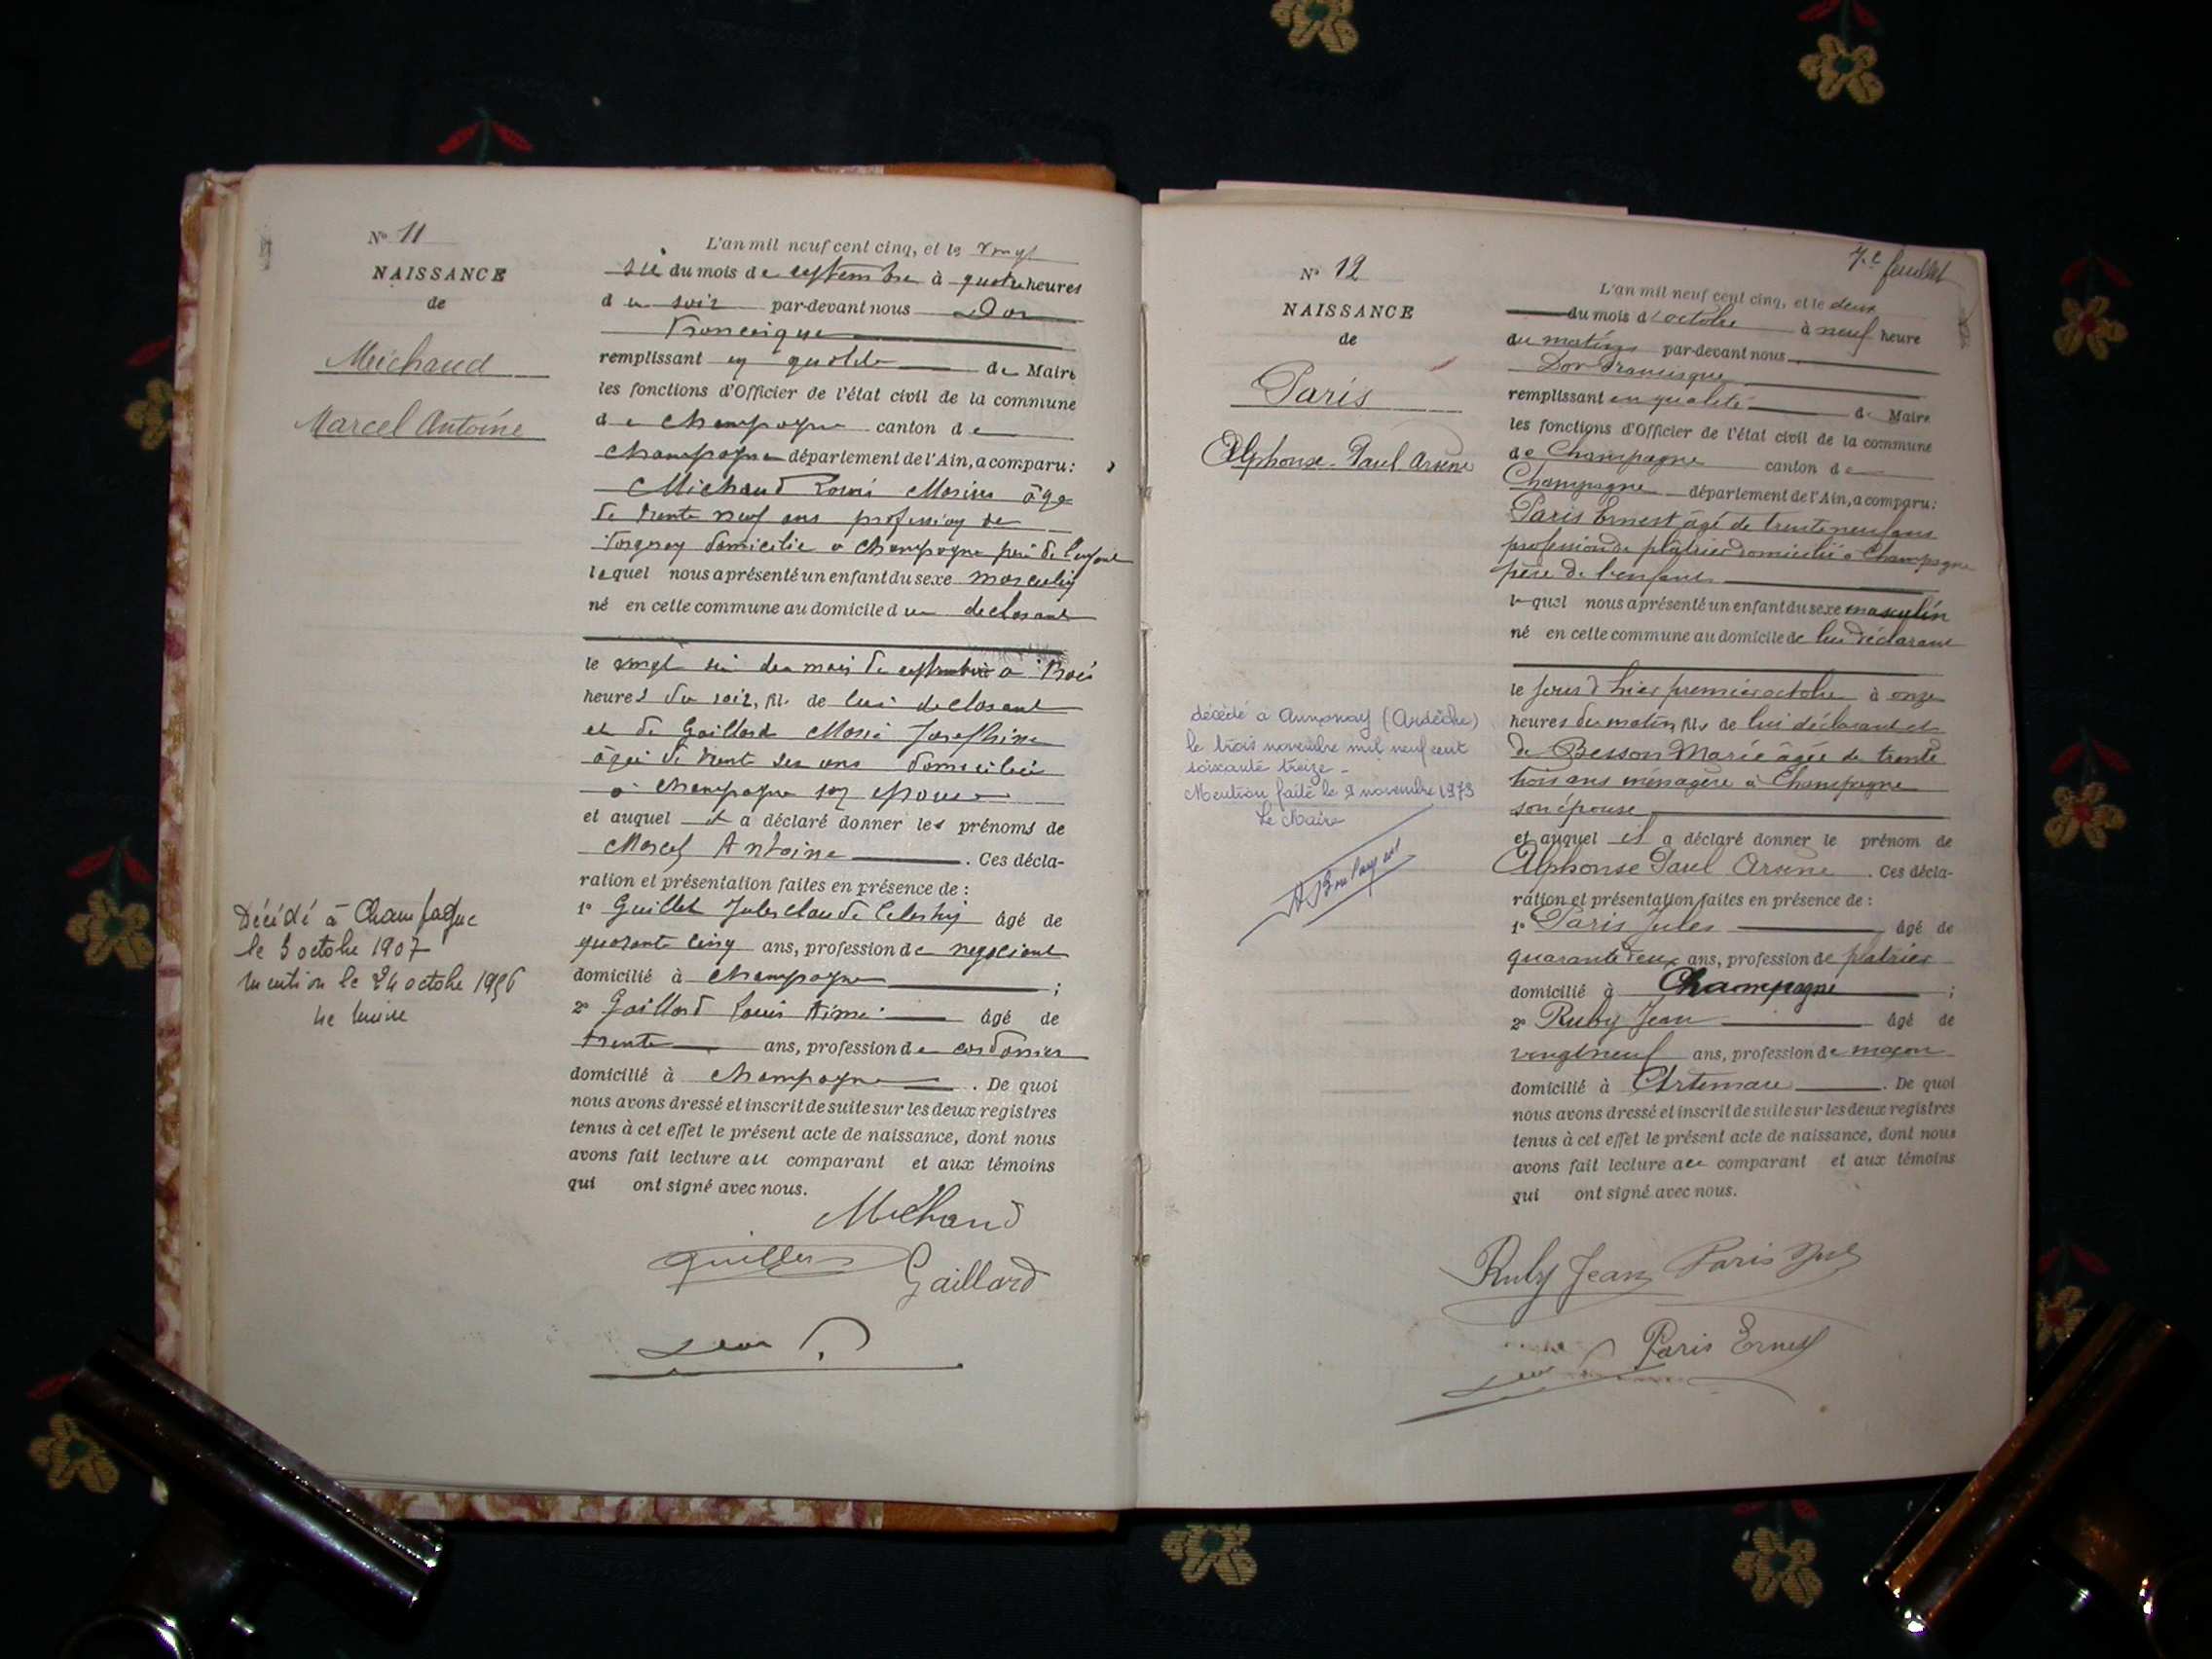 Nº 11
NAISSANCE
de
Michaud
Marcel Antoine
L'an mil neuf cent cinq, et le vingt
six du mois de septembre à quatre heures
du soir par-devant nous Dor
Francisque
remplissant en qualité de Maire
les fonctions d'Officier de l'état civil de la commune
de Champagne canton de
Champagne département de l'Ain, a comparu :
Michaud Louis Marius âgé
de trente neuf ans profession de
domicilié a Champagne père de l'enfant
lequel nous a présenté un enfant du sexe masculin
né en cette commune au domicile du declarant
le vingt six du mois de septembre a trois
heures du soir, fils de lui declarant
et de Gaillard Marie Josephine
âgée de trente six ans domiciliée
a Champagne son epouse
et auquel il a déclaré donner les prénoms de
Marcel Antoine . Ces décla-
ration et présentation faites en présence de :
1º Guillet Jules Claude Celestin âgé de
quarante cinq ans, profession de negociant
domicilié à Champagne ;
2º Gaillard Louis Aimé âgé de
trente ans, profession de cordonnier
domicilié à Champagne . De quoi
nous avons dressé et inscrit de suite sur les deux registres
tenus à cet effet le présent acte de naissance, dont nous
avons fait lecture au comparant et aux témoins
qui ont signé avec nous.
Décédé à Champagne
le 3 octobre 1907
mention le 24 octobre 1956
Le Maire
Michaud
Guillet
Gaillard
7e feuillet
Nº 12
NAISSANCE
de
Paris
Alphonse Paul Arsène
L'an mil neuf cent cinq, et le deux
du mois d'octobre à neuf heure
du matin par-devant nous
Dor Francisque
remplissant en qualité de Maire
les fonctions d'Officier de l'état civil de la commune
de Champagne canton de
Champagne département de l'Ain, a comparu :
Paris Ernest âgé de trente neuf ans
profession de plâtrier domicilié à Champagne
père de l'enfant
lequel nous a présenté un enfant du sexe masculin
né en cette commune au domicile de lui déclarant
le jour d'hier premier octobre à onze
heures du matin, fils de lui déclarant et
de Besson Marie âgée de trente
trois ans ménagère à Champagne
son épouse
et auquel il a déclaré donner le prénom de
Alphonse Paul Arsène . Ces décla-
ration et présentation faites en présence de :
1º Paris Jules âgé de
quarante deux ans, profession de plâtrier
domicilié à Champagne ;
2º Ruby Jean âgé de
vingt neuf ans, profession de maçon
domicilié à Artemare . De quoi
nous avons dressé et inscrit de suite sur les deux registres
tenus à cet effet le présent acte de naissance, dont nous
avons fait lecture au comparant et aux témoins
qui ont signé avec nous.
décédé à Annonay (Ardèche)
le trois novembre mil neuf cent
soixante treize -
Mention faite le 9 novembre 1973
Le Maire
Ruby Jean Paris Jules
Paris Ernest